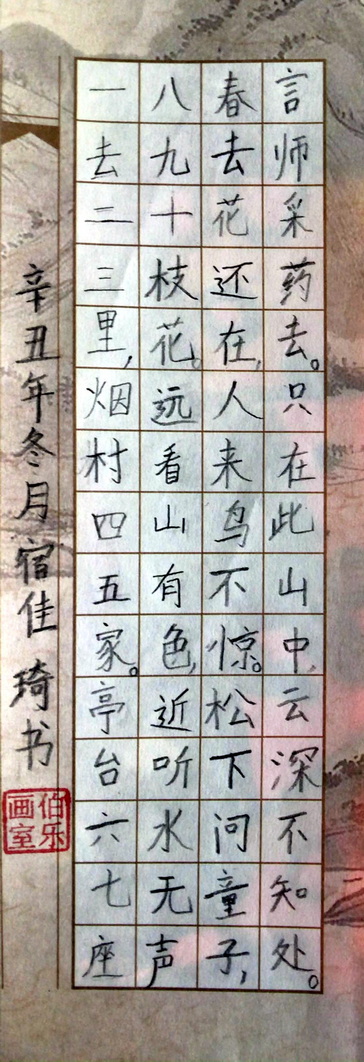 一去二三里,烟村四五家。亭台六七座
八九十枝花。远看山有色,近听水无声
春去花还在,人来鸟不惊。松下问童子,
言师采药去。只在此山中,云深不知处。
辛丑年冬月宿佳琦书
伯乐画室